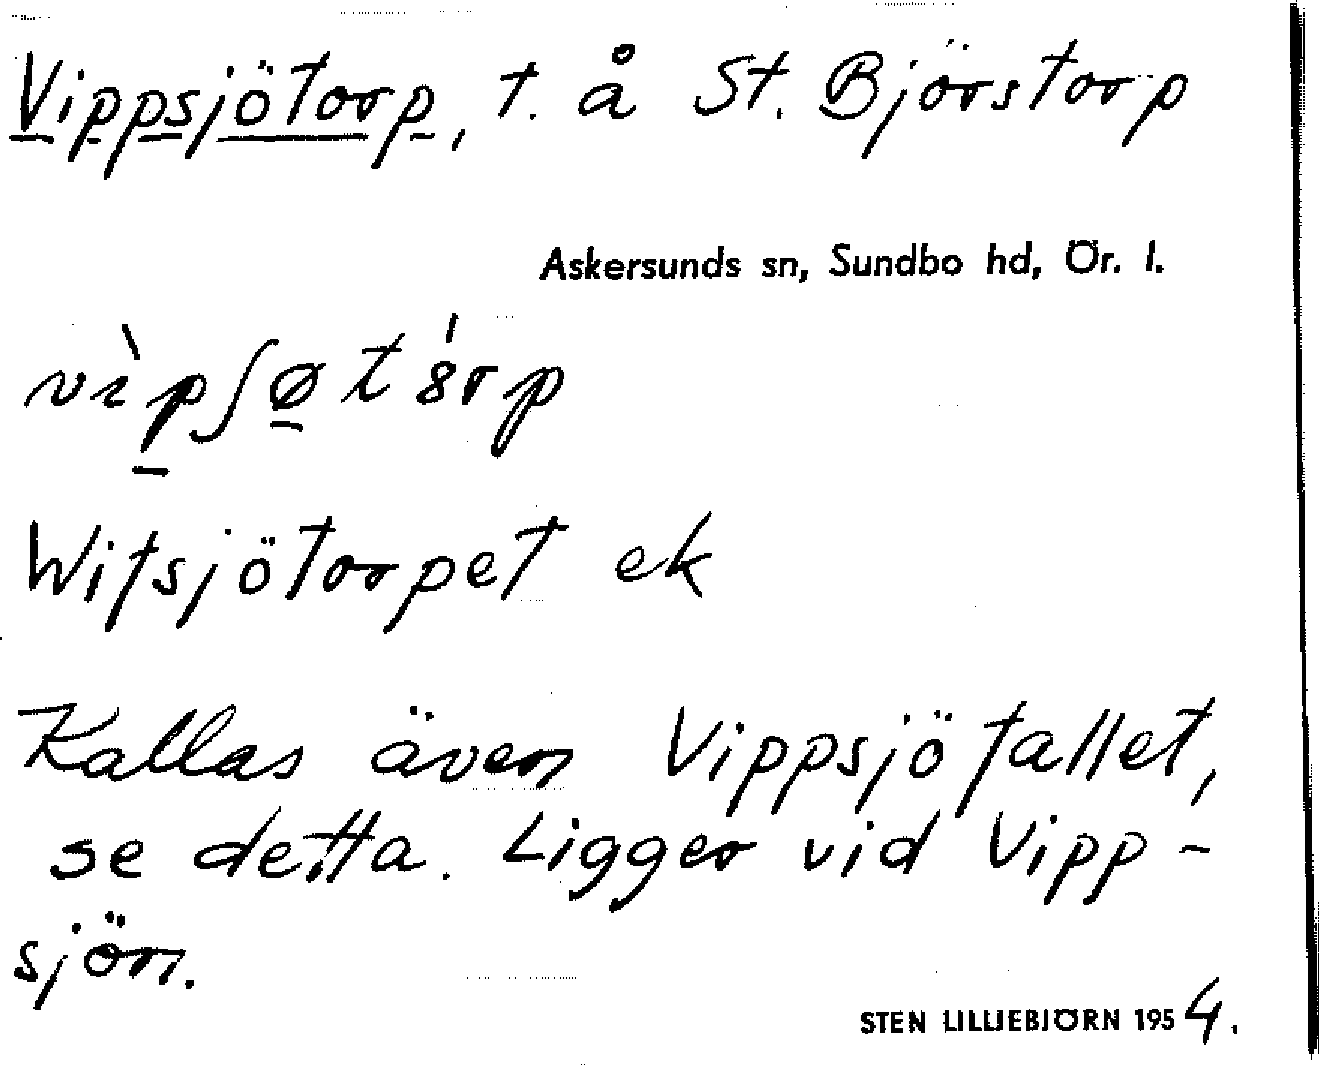 Vippsjötorp, t. å St. Björstorp
Askersunds sn, Sundbo hd, Ör. l.
vìpʃøtórp
Witsjötorpet ek
Kallas även Vippsjöfallet,
se detta. Ligger vid Vipp-
sjön.
STEN LILLIEBJÖRN 1954.